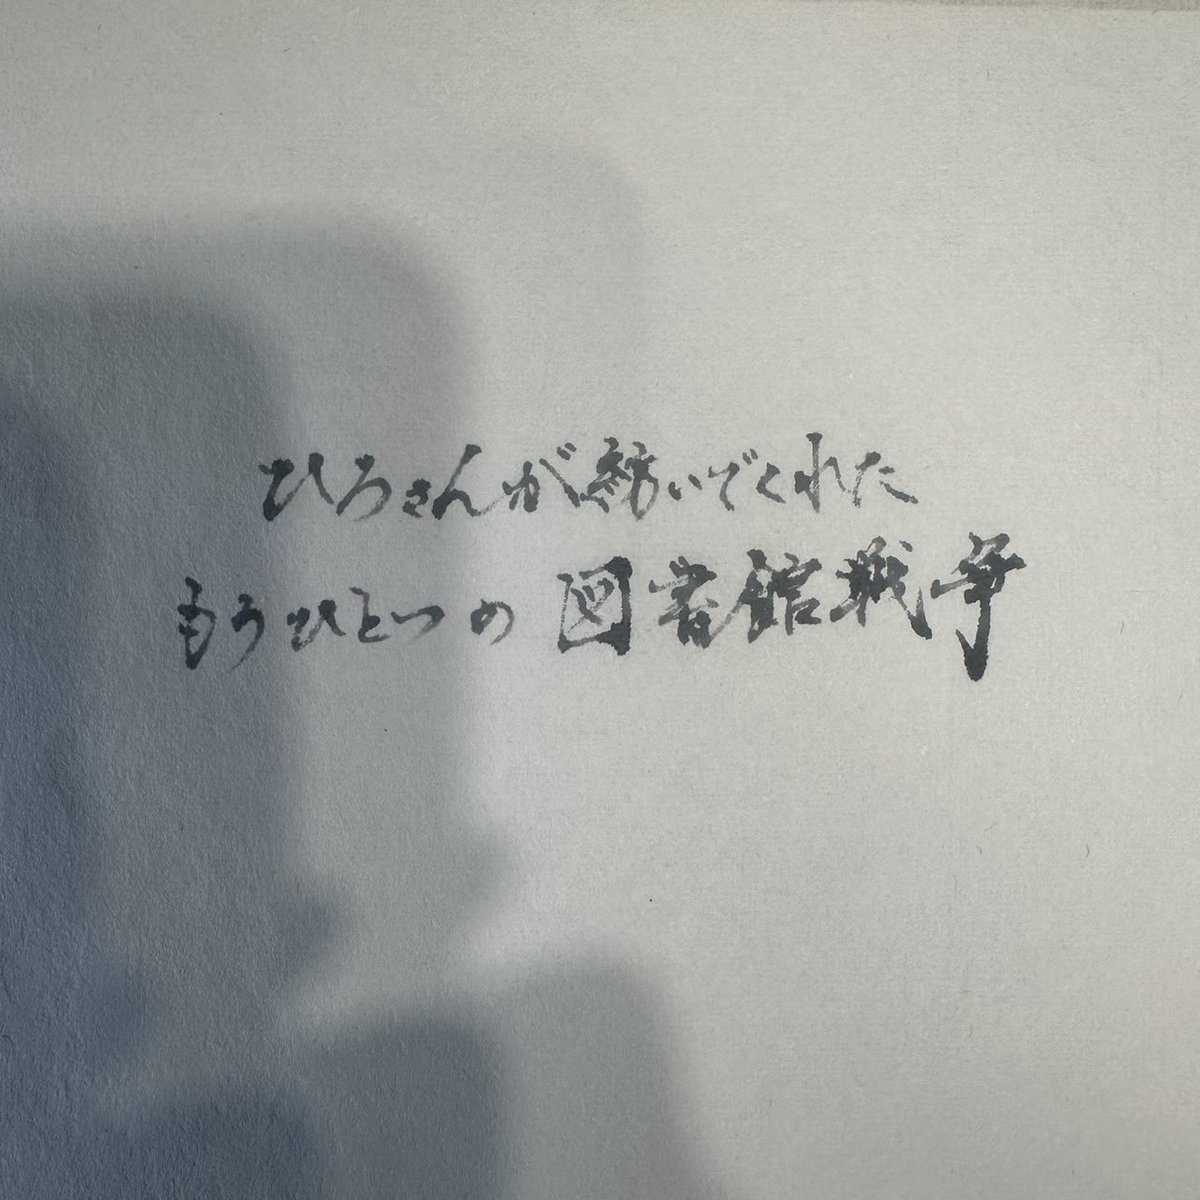 ひろさんが紡いでくれた
もうひとつの 図書館戦争